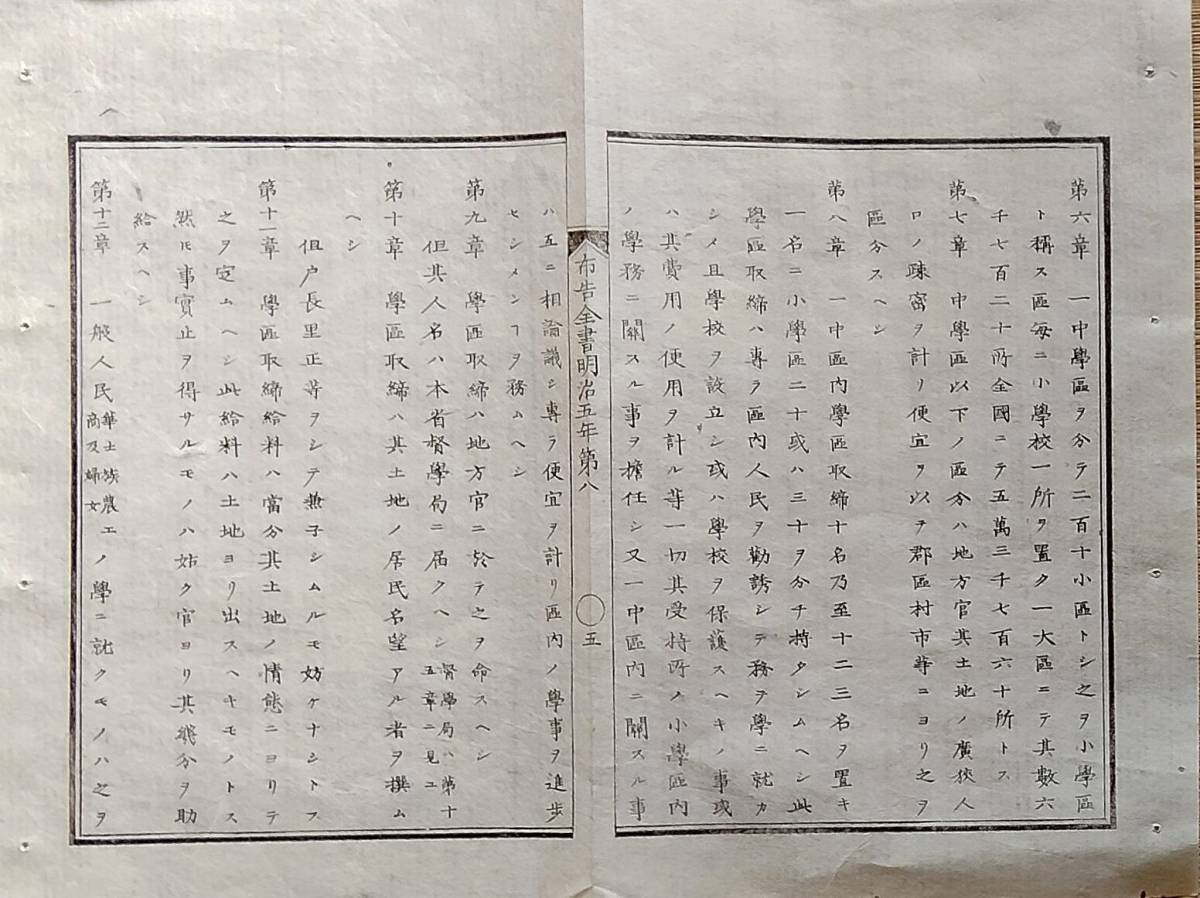 第六章 一中學區ヲ分テ二百十小區トシ之ヲ小學區
ト稱ス區每ニ小學校一所ヲ置ク一大區ニテ其數六
千七百二十所全國ニテ五萬三千七百六十所トス
第七章 中學區以下ノ區分ハ地方官其土地ノ廣狹人
口ノ疎密ヲ計リ便宜ヲ以テ郡區村市等ニヨリ之ヲ
區分スヘシ
第八章 一中區內學區取締十名乃至十二三名ヲ置キ
一名ニ小學區二十或ハ三十ヲ分チ持タシムヘシ此
學區取締ハ專ラ區內人民ヲ勸誘シテ務ヲ學ニ就カ
シメ且學校ヲ設立シ或ハ學校ヲ保護スヘキノ事或
ハ其費用ノ使用ヲ計ル等一切其受持所ノ小學區內
ノ學務ニ關スル事ヲ擔任シ又一中區內ニ關スル事
布告全書明治五年第八 〇 五
ハ互ニ相論議シ專ラ便宜ヲ計リ區內ノ學事ヲ進步
セシメンヿヲ務ムヘシ
第九章 學區取締ハ地方官ニ於テ之ヲ命スヘシ
但其人名ハ本省督學局ニ屆クヘシ督學局ハ第十五章ニ見ユ
第十章 學區取締ハ其土地ノ居民名望アル者ヲ撰ム
ヘシ
但戶長里正等ヲシテ兼子シムルモ妨ケナシトス
第十一章 學區取締給料ハ當分其土地ノ情態ニヨリテ
之ヲ定ムヘシ此給料ハ土地ヨリ出スヘキモノトス
然𪜈事實止ヲ得サルモノハ姑ク官ヨリ其幾分ヲ助
給スヘシ
第十二章 一般人民華士族農工商及婦女ノ學ニ就クモノハ之ヲ